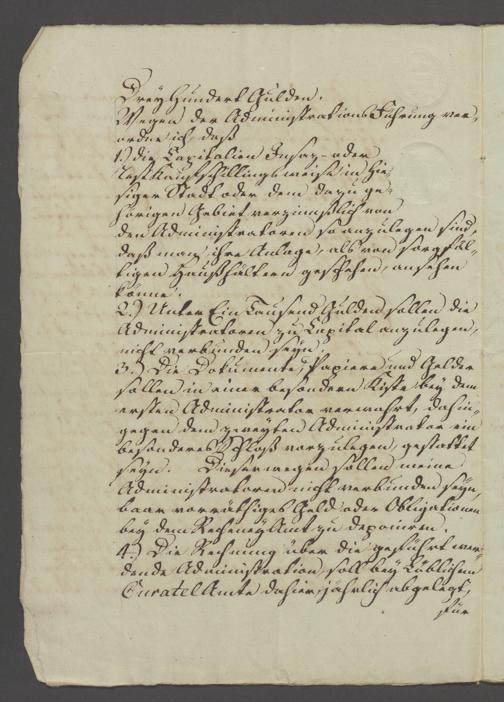 Drey Hundert Gulden.
Wegen der Administrations Führung ver-
ordne ich, daß
1.) die Capitalien Insaz- oder
Restkaufschillingsweise in hie-
siger Stadt oder dem dazu ge-
hörigen Gebiet verzinnslich von
den Administratoren so anzulegen sind,
daß man ihre Anlage, als von sorgfäl-
tigen Haushältern geschehen, ansehen
könne.
2.) Unter Ein Tausend Gulden sollen die
Administratoren zu Capital anzulegen,
nicht verbunden seyn.
3.) Die Dokumente, Papiere und Gelder
sollen in einer besondern Kiste bey dem
ersten Administrator verwahrt, dahin-
gegen dem zweyten Administrator ein
besonderes Schloß vorzulegen, gestattet
seyn. Dieserwegen sollen meine
Administratoren nicht verbunden seyn,
baar vorräthiges Geld oder Obligationen
bey dem Rechney Amt zu deponiren.
4.) Die Rechnung über die geführt wer-
dende Administration, soll bey Löblichem
Curatel Amte dahier, jährlich abgelegt,
für